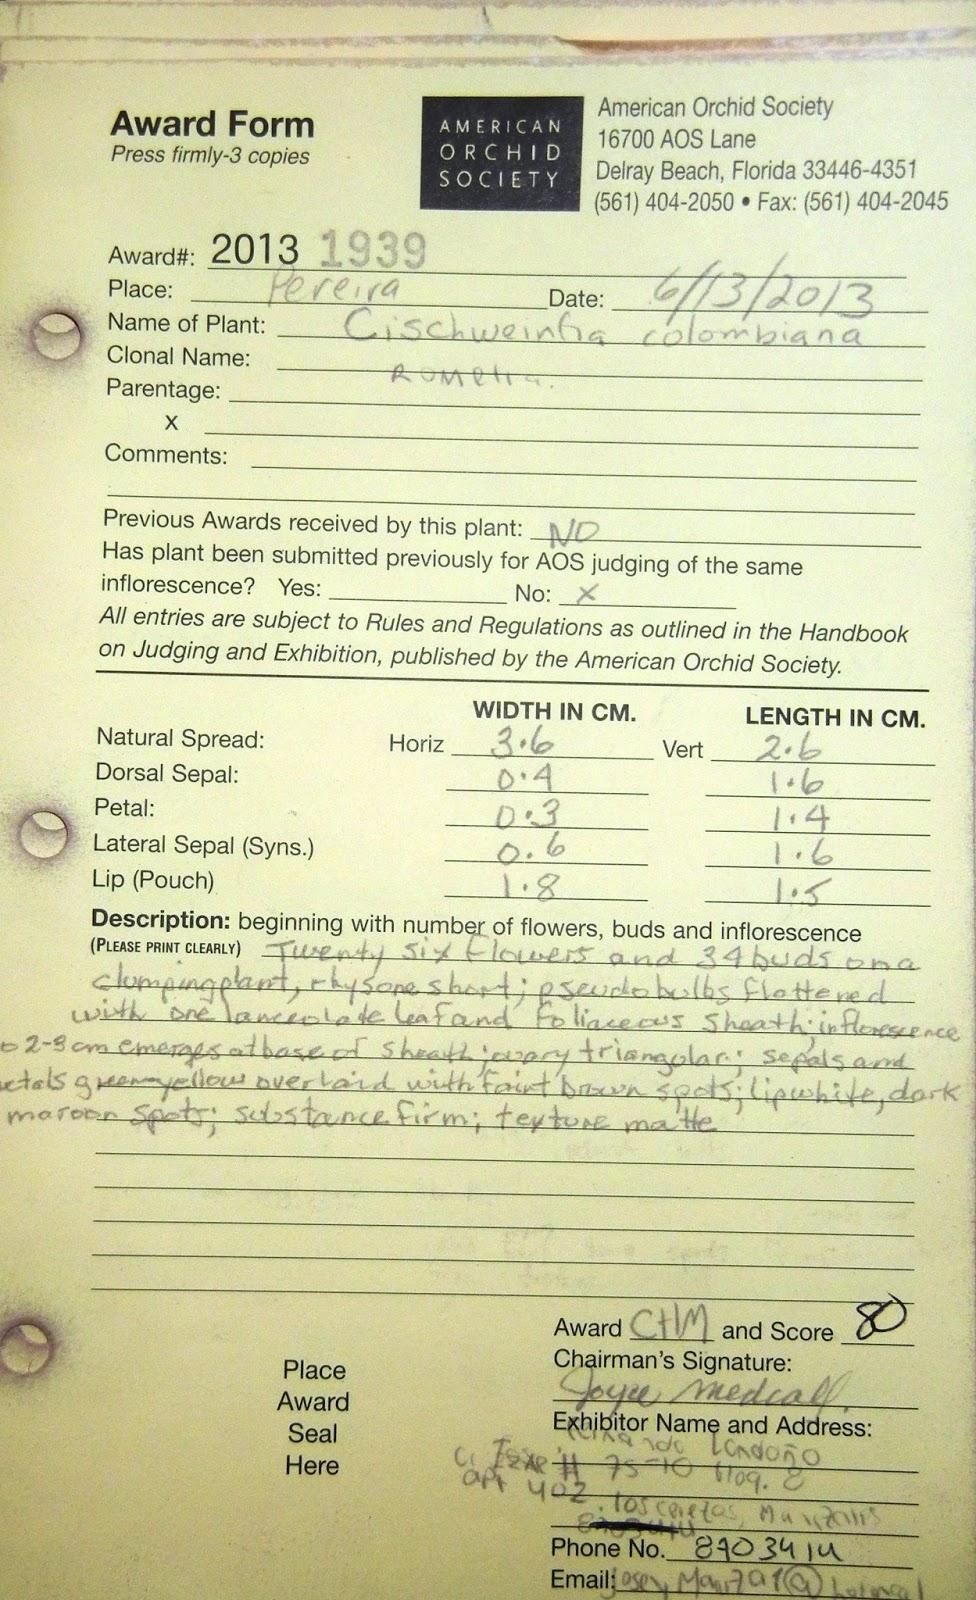 Award Form
Press firmly-3 copies
AMERICAN
ORCHID
SOCIETY
American Orchid Society
16700 AOS Lane
Delray Beach, Florida 33446-4351
(561) 404-2050 • Fax: (561) 404-2045
Award#: 2013 1939
Place: Pereira Date: 6/13/2013
Name of Plant: Cischweinfia colombiana
Clonal Name: Romelia.
Parentage:
x
Comments:
Previous Awards received by this plant: NO
Has plant been submitted previously for AOS judging of the same
inflorescence? Yes: No: X
All entries are subject to Rules and Regulations as outlined in the Handbook
on Judging and Exhibition, published by the American Orchid Society.
WIDTH IN CM. LENGTH IN CM.
Natural Spread: Horiz 3.6 Vert 2.6
Dorsal Sepal: 0.4 1.6
Petal: 0.3 1.4
Lateral Sepal (Syns.) 0.6 1.6
Lip (Pouch) 1.8 1.5
Description: beginning with number of flowers, buds and inflorescence
(PLEASE PRINT CLEARLY) Twenty six flowers and 34 buds on a
clumping plant, rhysone short; pseudobulbs flattered
with one lanceolate leaf and foliaceous sheath; inflorescence
2-3 cm emerges at base of sheath; ovary triangular; sepals and
etals green-yellow overlaid with faint brown spots; lip white, dark
maroon spots; substance firm; texture matte
Award CHM and Score 80
Chairman's Signature:
Joyce Medcalf
Place
Award
Seal
Here
Exhibitor Name and Address:
Londoño
# 75-10 Bloq. 8
apt 402
Manizales
Phone No. 8903414
Email: